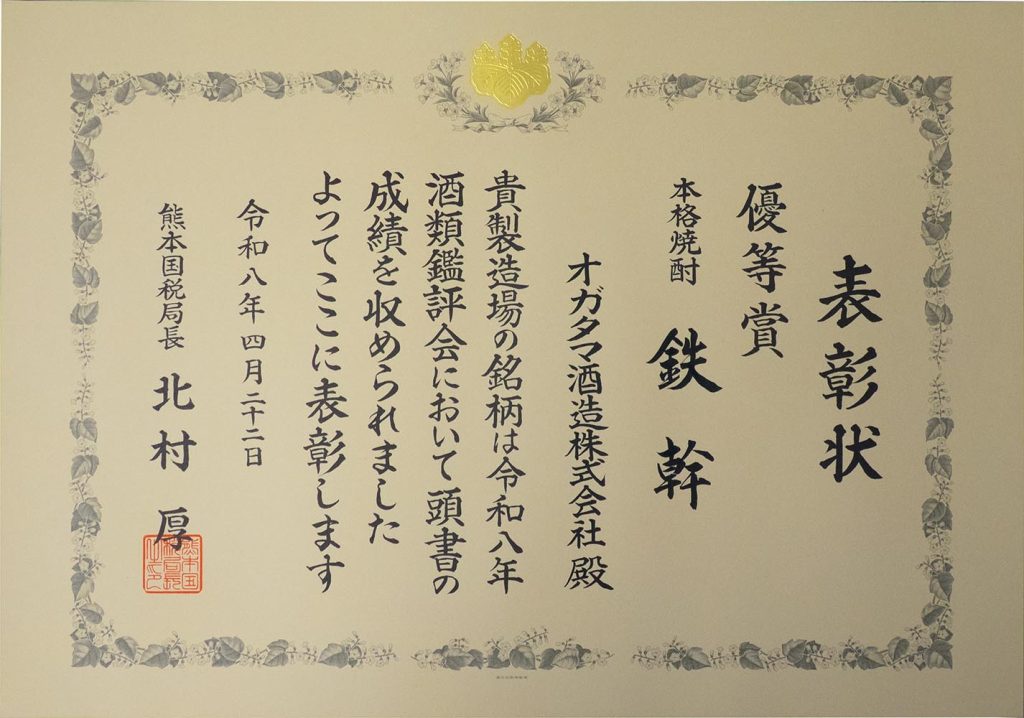 表彰状
優等賞
本格焼酎 鉄幹
オガタマ酒造株式会社殿
貴製造場の銘柄は令和八年
酒類鑑評会において頭書の
成績を収められました
よってここに表彰します
令和八年四月二十二日
熊本国税局長 北村厚